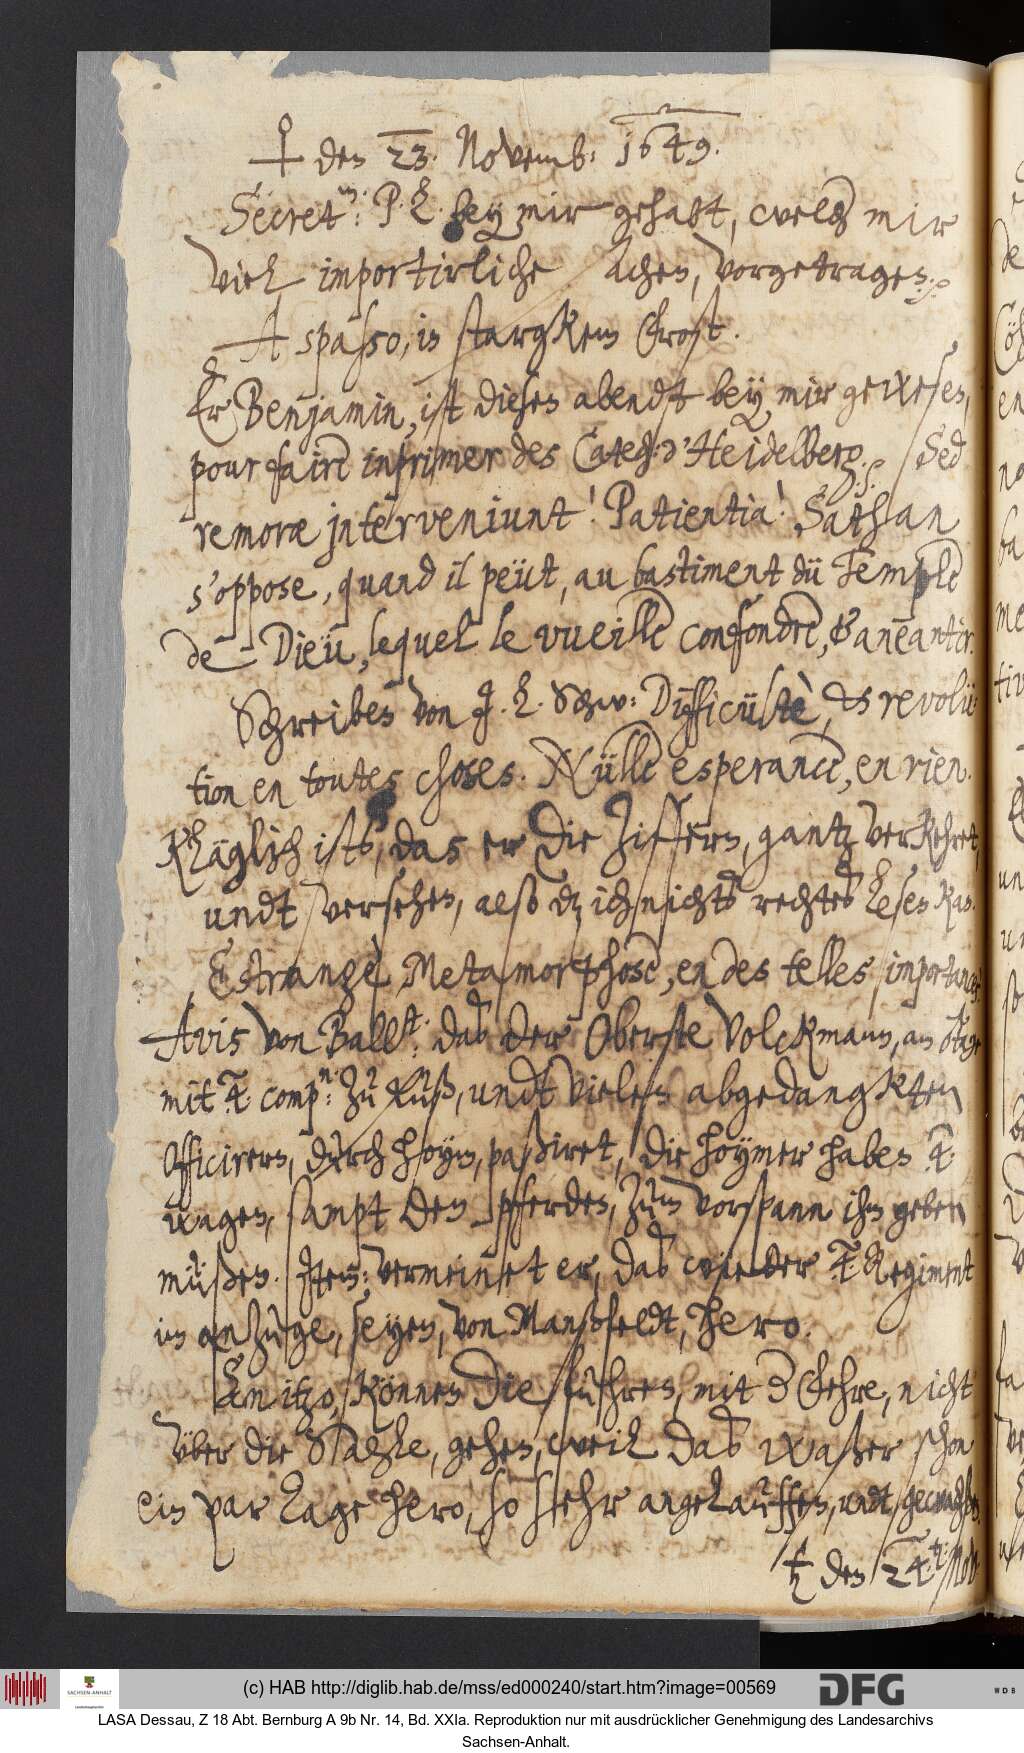 ♀ den 23. Novemb: 1649.
Secret.m: P. L. bey mir gehabt, welch mir
viel importirliche sachen, vorgetragen. p
A spasso, in stargkem Frost.
Er Benjamin, ist diesen abendt bey mir gewesen,
pour faire imprimer des Catech: d'Heidelberg. Sed
remoræ interveniunt! Patientia! D. S. Sathan
s'oppose, quand il peüt, au bastiment dü Temple
de Dieü, lequel le vueille confondre, & aneantir.
Schreiben von H. L. Schw: Difficüstè, & revolü-
tion en toutes choses. Nülle esperance, en rien.
Kläglich ists, das er die Ziffern, gantz verkehret,
undt versehen, alß dz ich nichts rechtes lesen kan.
Estrangè Metamorphose, en des telles importances.
Avis von Ball.st: das der Oberste Volckmann, an
mit 4. comp.n: zu Fuß, undt vielen abgedangkten
Officirern, durch Hoym, paßiret, die Hoymer haben 4.
wagen, sampt den pferden, zum vorspann ihm geben
müßen. Item: vermeinet er, das wieder 4 Regiment
im anzuge, seyen, von Manßfeldt, hero.
An itzo, können die fuhren, mit d Fehre, nicht
vber die Saale, gehen, weil das waßer schon
ein par tage hero, so sehr angelauffen, undt gewachsen.
♄ den 24.t: Nov:
(c) HAB http://diglib.hab.de/mss/ed000240/start.htm?image=00569
SACHSEN-ANHALT
DFG
WDB
LASA Dessau, Z 18 Abt. Bernburg A 9b Nr. 14, Bd. XXIa. Reproduktion nur mit ausdrücklicher Genehmigung des Landesarchivs
Sachsen-Anhalt.